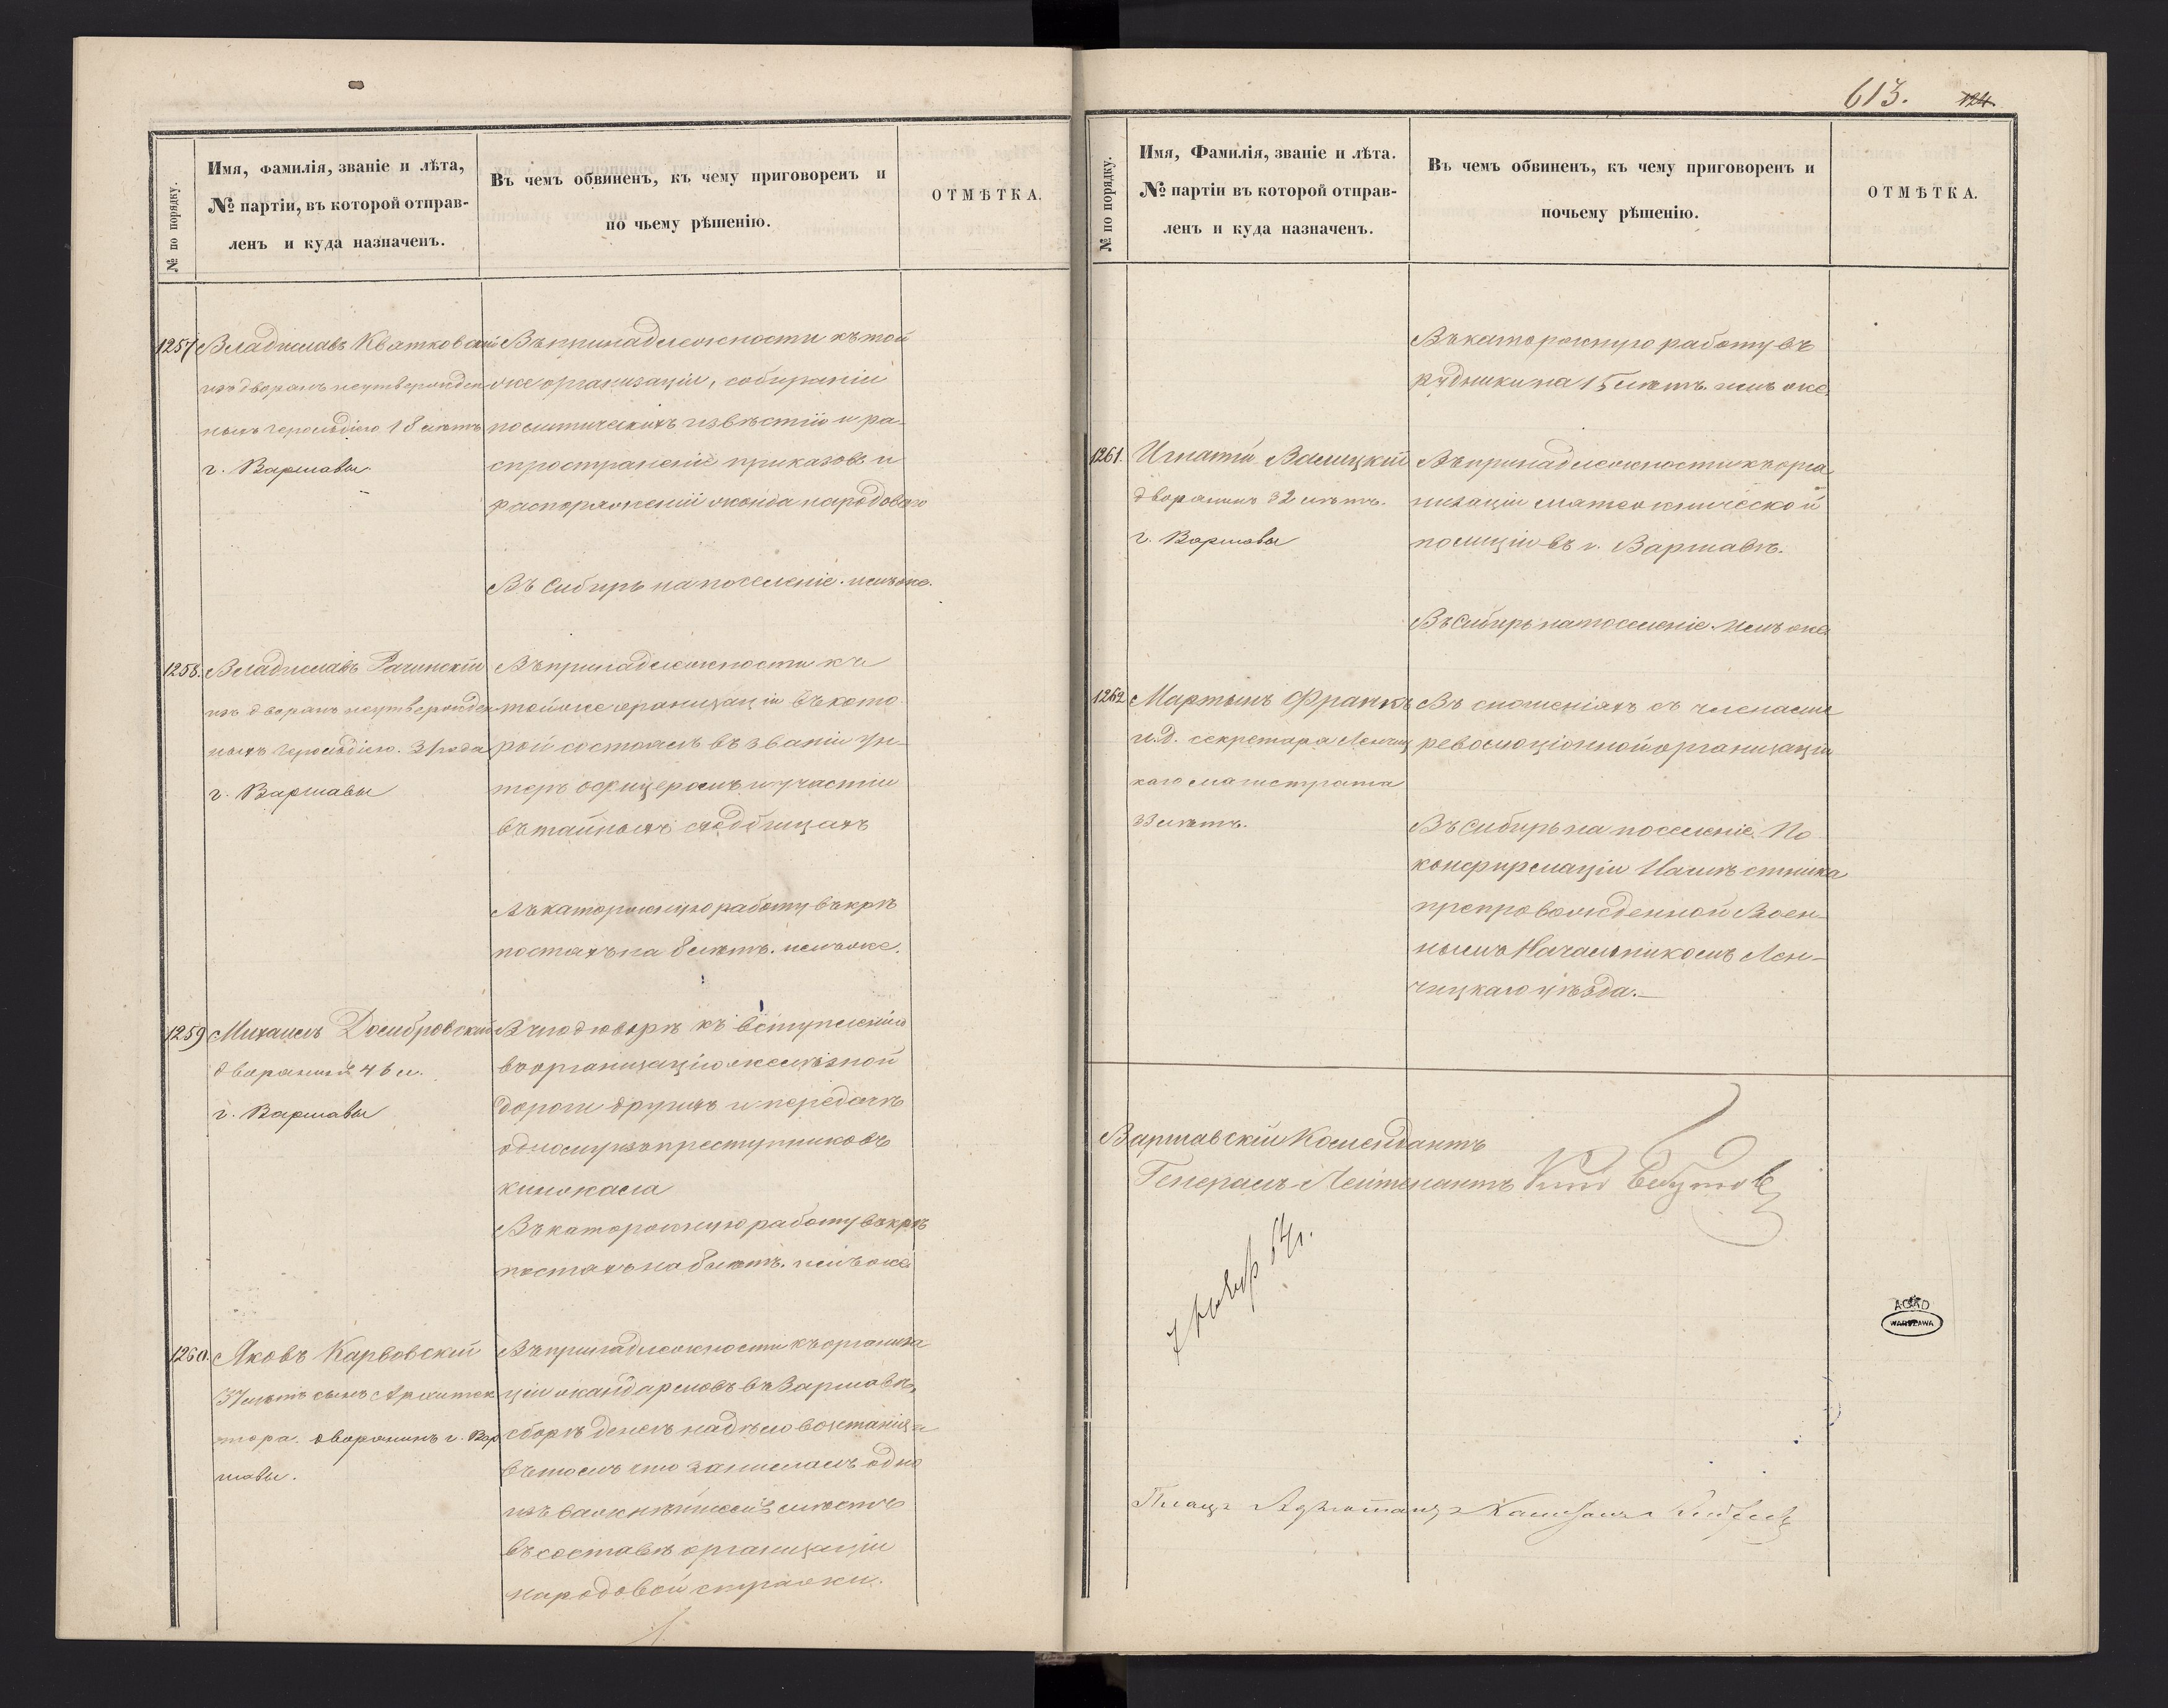 № по порядку.
Имя, фамилія, званіе и лѣта,
№ партіи, въ которой отправ-
ленъ и куда назначенъ.
Въ чемъ обвиненъ, къ чему приговоренъ и
по чьему рѣшенію.
ОТМѢТКА.
1257 Владиславъ Квятковскій
изъ дворянъ неутвержден
ныхъ герольдіею 18 лѣтъ
г. Варшавы.
Въ принадлежности къ той
же организаціи, собираніи
политическихъ извѣстій и ра-
спространеніе приказовъ и
распоряженій жонда народоваго
Въ Сибирь на поселеніе. имъ же.
1258. Владиславъ Рачинскій
изъ дворянъ неутвержден
ныхъ герольдіею. 31 года
г. Варшавы
Въ принадлежности къ
той же организаціи въ кото
рой состоялъ въ званіи ун-
теръ офицеромъ и участіи
въ тайныхъ сходбищахъ
Въ каторжную работу въ крѣ
постяхъ на 8 лѣтъ. имъ же.
1259 Михаилъ Домбровскій
дворянинъ 46 л.
г. Варшавы
Въ подговорѣ къ вступленію
въ организацію желѣзной
дороги другихъ и передачѣ
одному изъ преступниковъ
кинжала
Въ каторжную работу въ крѣ
постяхъ на 8 лѣтъ. имъ же
1260. Яковъ Карвовскій
37 лѣтъ сынъ Архитек
тора. дворянинъ г. Вар
шавы.
Въ принадлежности къ организа
ціи жандармовъ въ Варшавѣ,
сборѣ денегъ на дѣло возстанія и
въ томъ что занималъ одно
изъ важнѣйшихъ мѣстъ
въ составѣ организаціи
народовой стражи.
613. 124.
№ по порядку.
Имя, Фамилія, званіе и лѣта.
№ партіи въ которой отправ-
ленъ и куда назначенъ.
Въ чемъ обвиненъ, къ чему приговоренъ и
почьему рѣшенію.
ОТМѢТКА.
Въ каторжную работу въ
рудники на 15 лѣтъ. имъ же.
1261. Игнатій Валицкій
дворянинъ 32 лѣтъ.
г. Варшавы
Въ принадлежности къ орга
низаціи мятежнической
полиціи въ г. Варшавѣ.
Въ Сибирь на поселеніе. имъ же
1262 Мартынъ Франкъ
и.д. секретаря Ленчиц
каго магистрата
33 лѣтъ.
Въ сношеніяхъ съ членами
революціонной организаціи
Въ Сибирь на поселеніе. По
конфирмаціи Намѣстника
препровожденной Воен-
нымъ Начальникомъ Лен-
чицкаго уѣзда.—
Варшавскій Комендантъ
Генералъ-Лейтенантъ
Плацъ Адъютантъ
AGAD
WARSZAWA